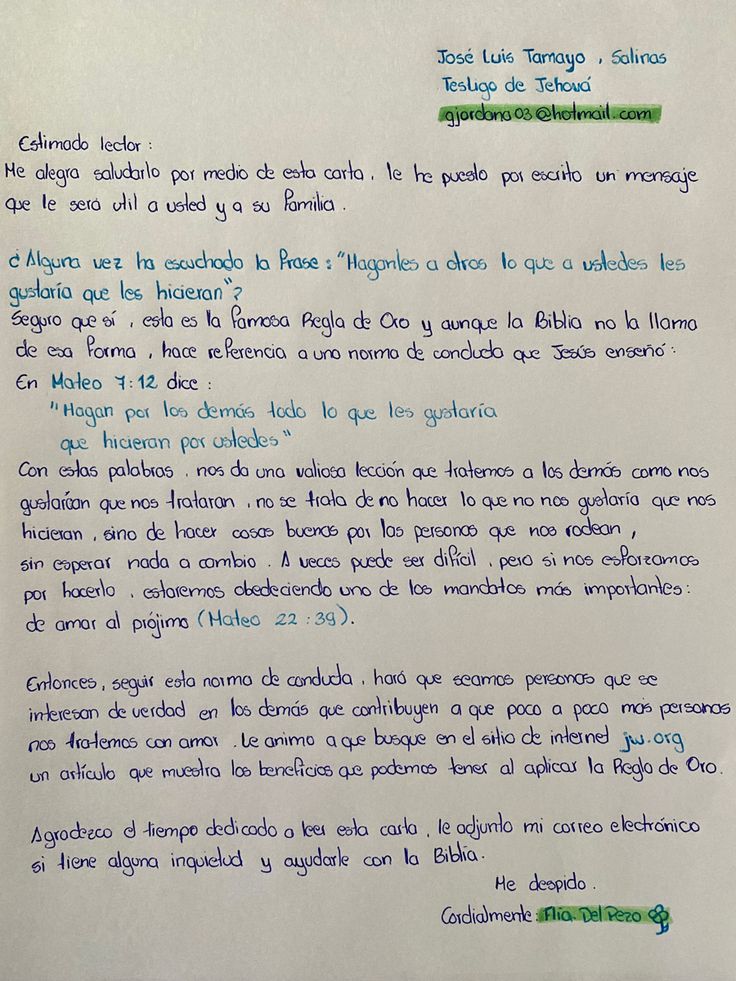 José Luis Tamayo, Salinas
Testigo de Jehová
gjordana03@hotmail.com
Estimado lector:
Me alegra saludarlo por medio de esta carta, le he puesto por escrito un mensaje
que le será util a usted y a su familia.
¿Alguna vez ha escuchado la frase: "Haganles a otros lo que a ustedes les
gustaría que les hicieran"?
Seguro que sí, esta es la famosa Regla de Oro y aunque la Biblia no la llama
de esa forma, hace referencia a una norma de conducta que Jesús enseñó:
En Mateo 7:12 dice:
"Hagan por los demás todo lo que les gustaría
que hicieran por ustedes"
Con estas palabras, nos da una valiosa lección que tratemos a los demás como nos
gustarían que nos trataran, no se trata de no hacer lo que no nos gustaría que nos
hicieran, sino de hacer cosas buenas por las personas que nos rodean,
sin esperar nada a cambio. A veces puede ser difícil, pero si nos esforzamos
por hacerlo, estaremos obedeciendo uno de los mandatos más importantes:
de amar al prójimo (Mateo 22:39).
Entonces, seguir esta norma de conducta, hará que seamos personas que se
interesan de verdad en los demás que contribuyen a que poco a poco más personas
nos tratemos con amor. Le animo a que busque en el sitio de internet jw.org
un artículo que muestra los beneficios que podemos tener al aplicar la Regla de Oro.
Agradezco el tiempo dedicado a leer esta carta, le adjunto mi correo electrónico
si tiene alguna inquietud y ayudarle con la Biblia.
Me despido.
Cordialmente: Flia. Del Pezo